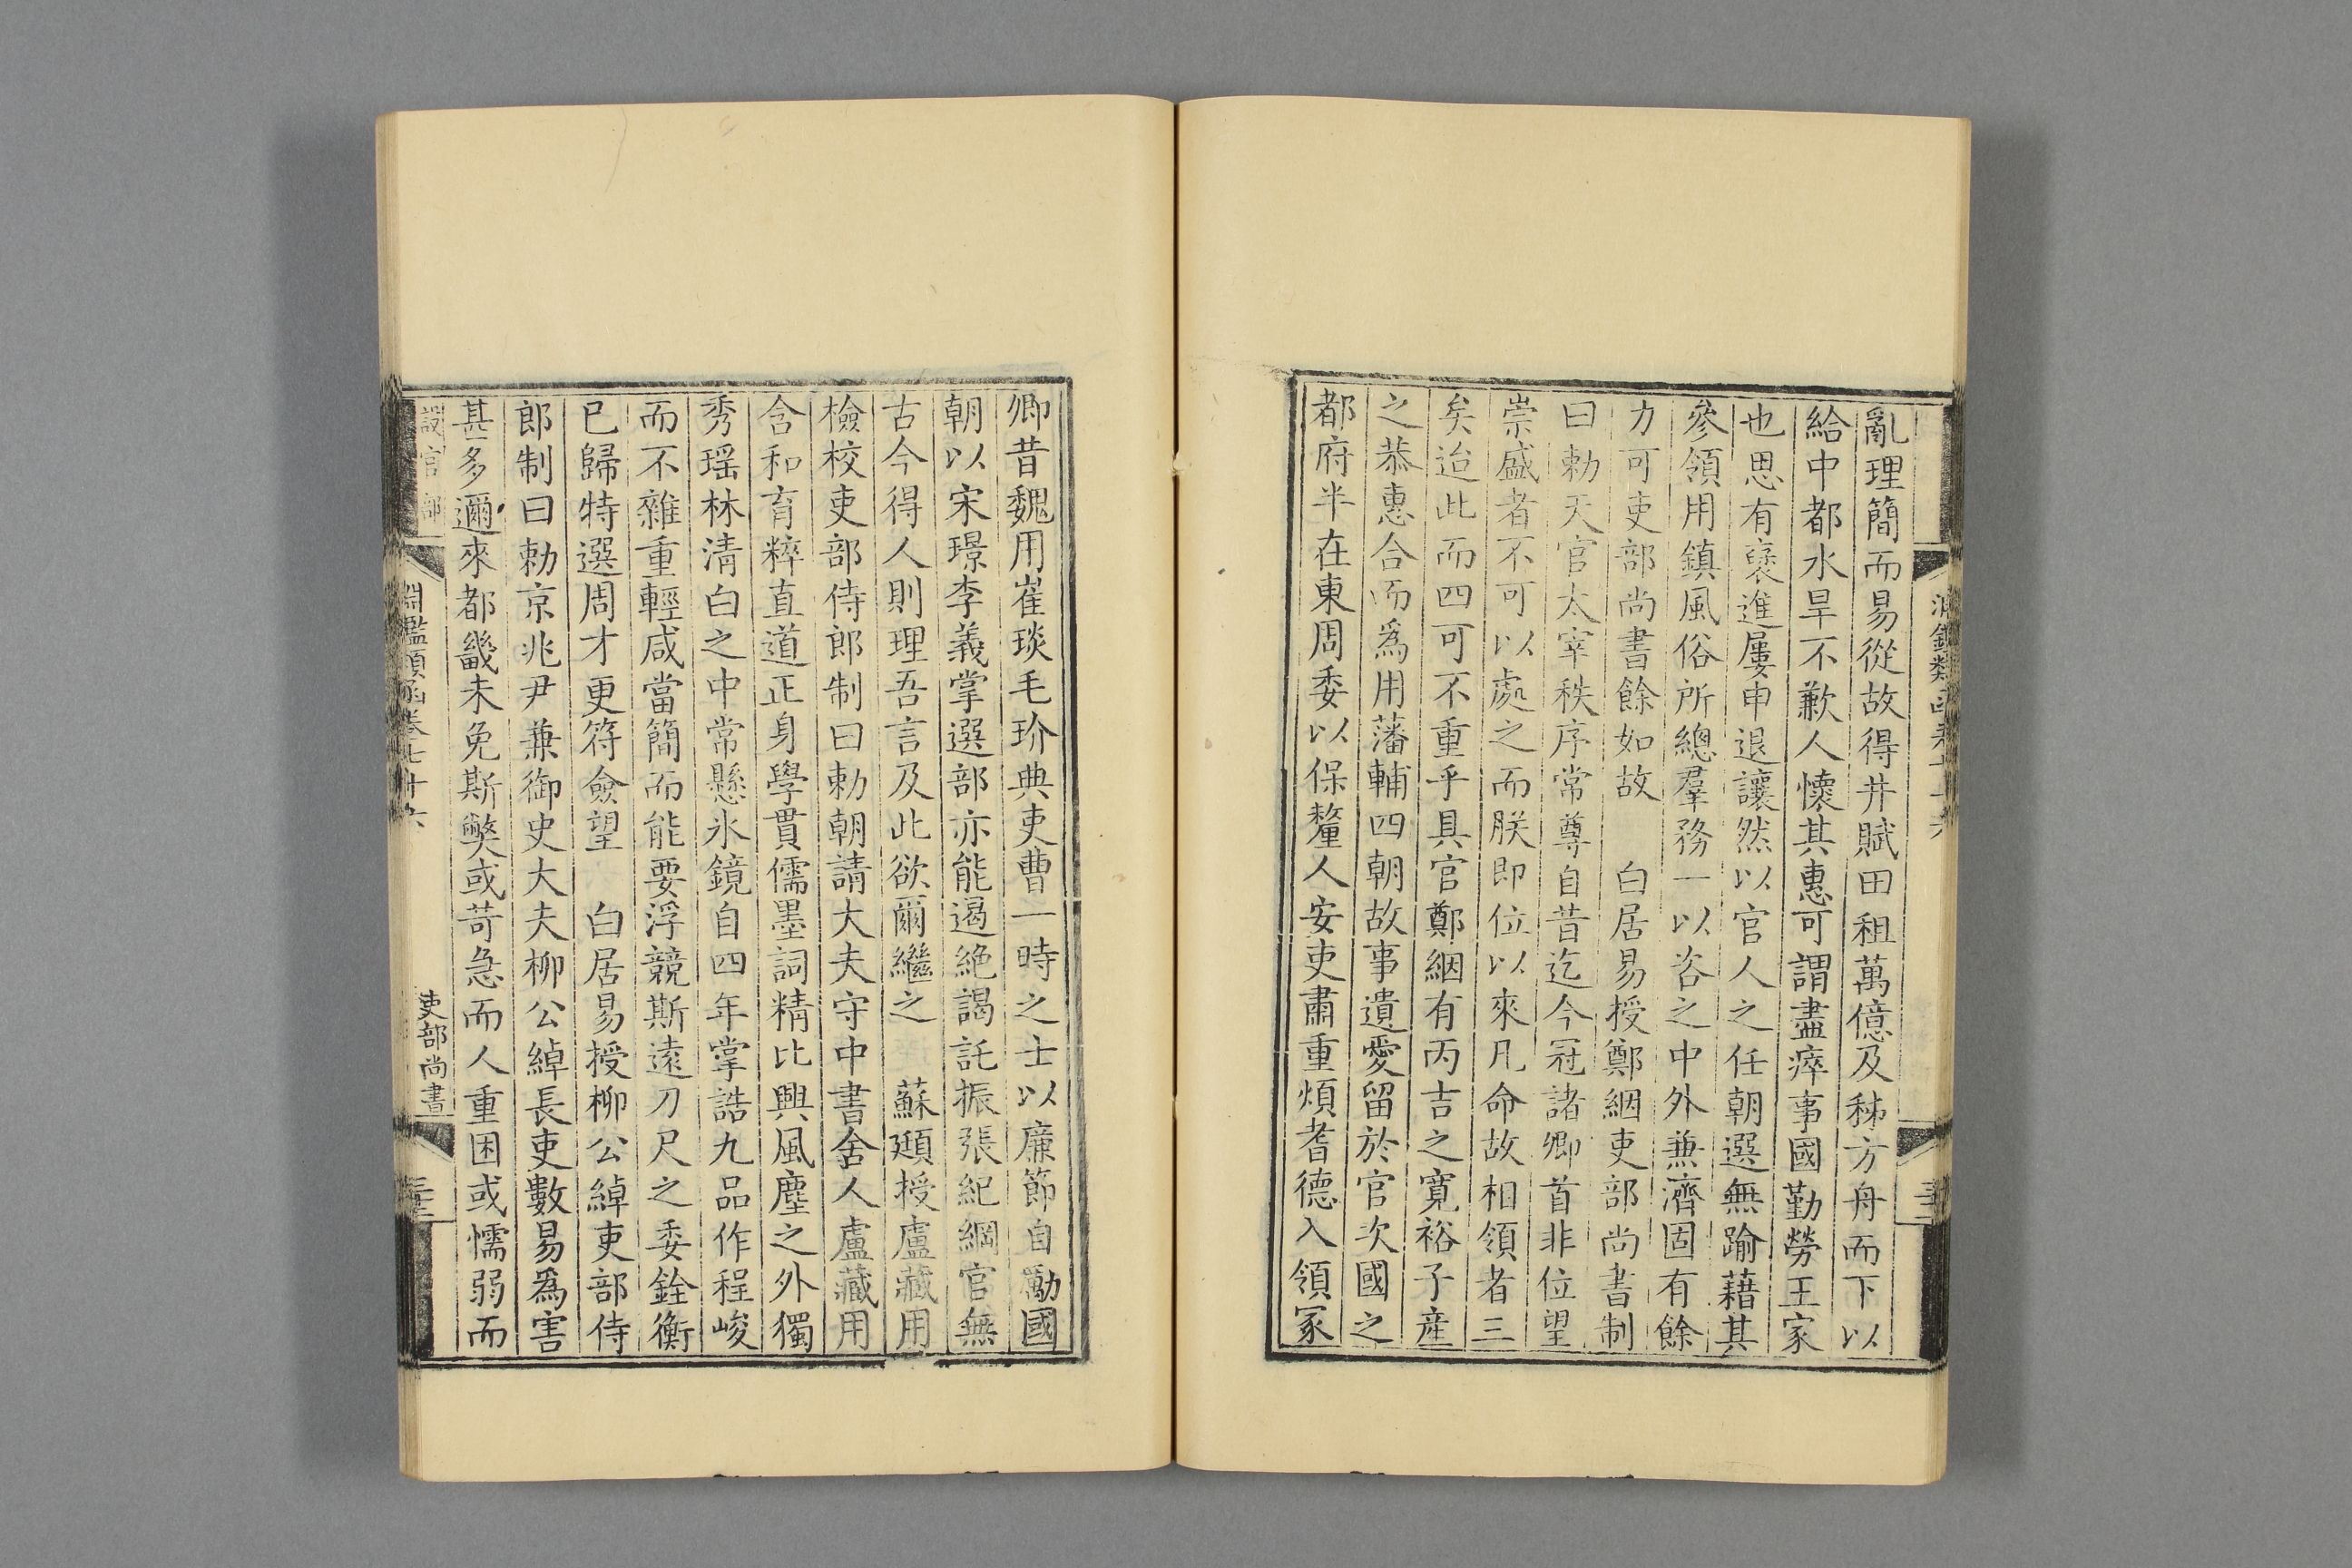 亂理簡而易從故得井賦田租萬億及秭方舟而下以
給中都水旱不歉人懷其惠可謂盡瘁事國勤勞王家
也思有褒進屢申退讓然以官人之任朝選無踰藉其
參領用鎮風俗所總羣務一以咨之中外兼濟固有餘
力可吏部尚書餘如故　白居易授鄭絪吏部尚書制
曰勅天官太宰秩序常尊自昔迄今冠諸卿首非位望
崇盛者不可以處之而朕即位以來凡命故相領者三
矣迨此而四可不重乎具官鄭絪有丙吉之寬裕子産
之恭惠合而爲用藩輔四朝故事遺愛留於官次國之
都府半在東周委以保釐人安吏肅重煩耆德入領冢
卿昔魏用崔琰毛玠典吏曹一時之士以廉節自勵國
朝以宋璟李義掌選部亦能遏絶謁託振張紀綱官無
古今得人則理吾言及此欲爾繼之　蘇頲授盧藏用
檢校吏部侍郎制曰勅朝請大夫守中書舍人盧藏用
含和育粹直道正身學貫儒墨詞精比興風塵之外獨
秀瑶林清白之中常懸氷鏡自四年掌誥九品作程峻
而不雜重輕咸當簡而能要浮競斯遠刀尺之委銓衡
已歸特選周才更符僉望　白居易授柳公綽吏部侍
郎制曰勅京兆尹兼御史大夫柳公綽長吏數易爲害
甚多邇來都畿未免斯弊或苛急而人重困或懦弱而
設官部
淵鑑類函卷七十六
吏部尚書